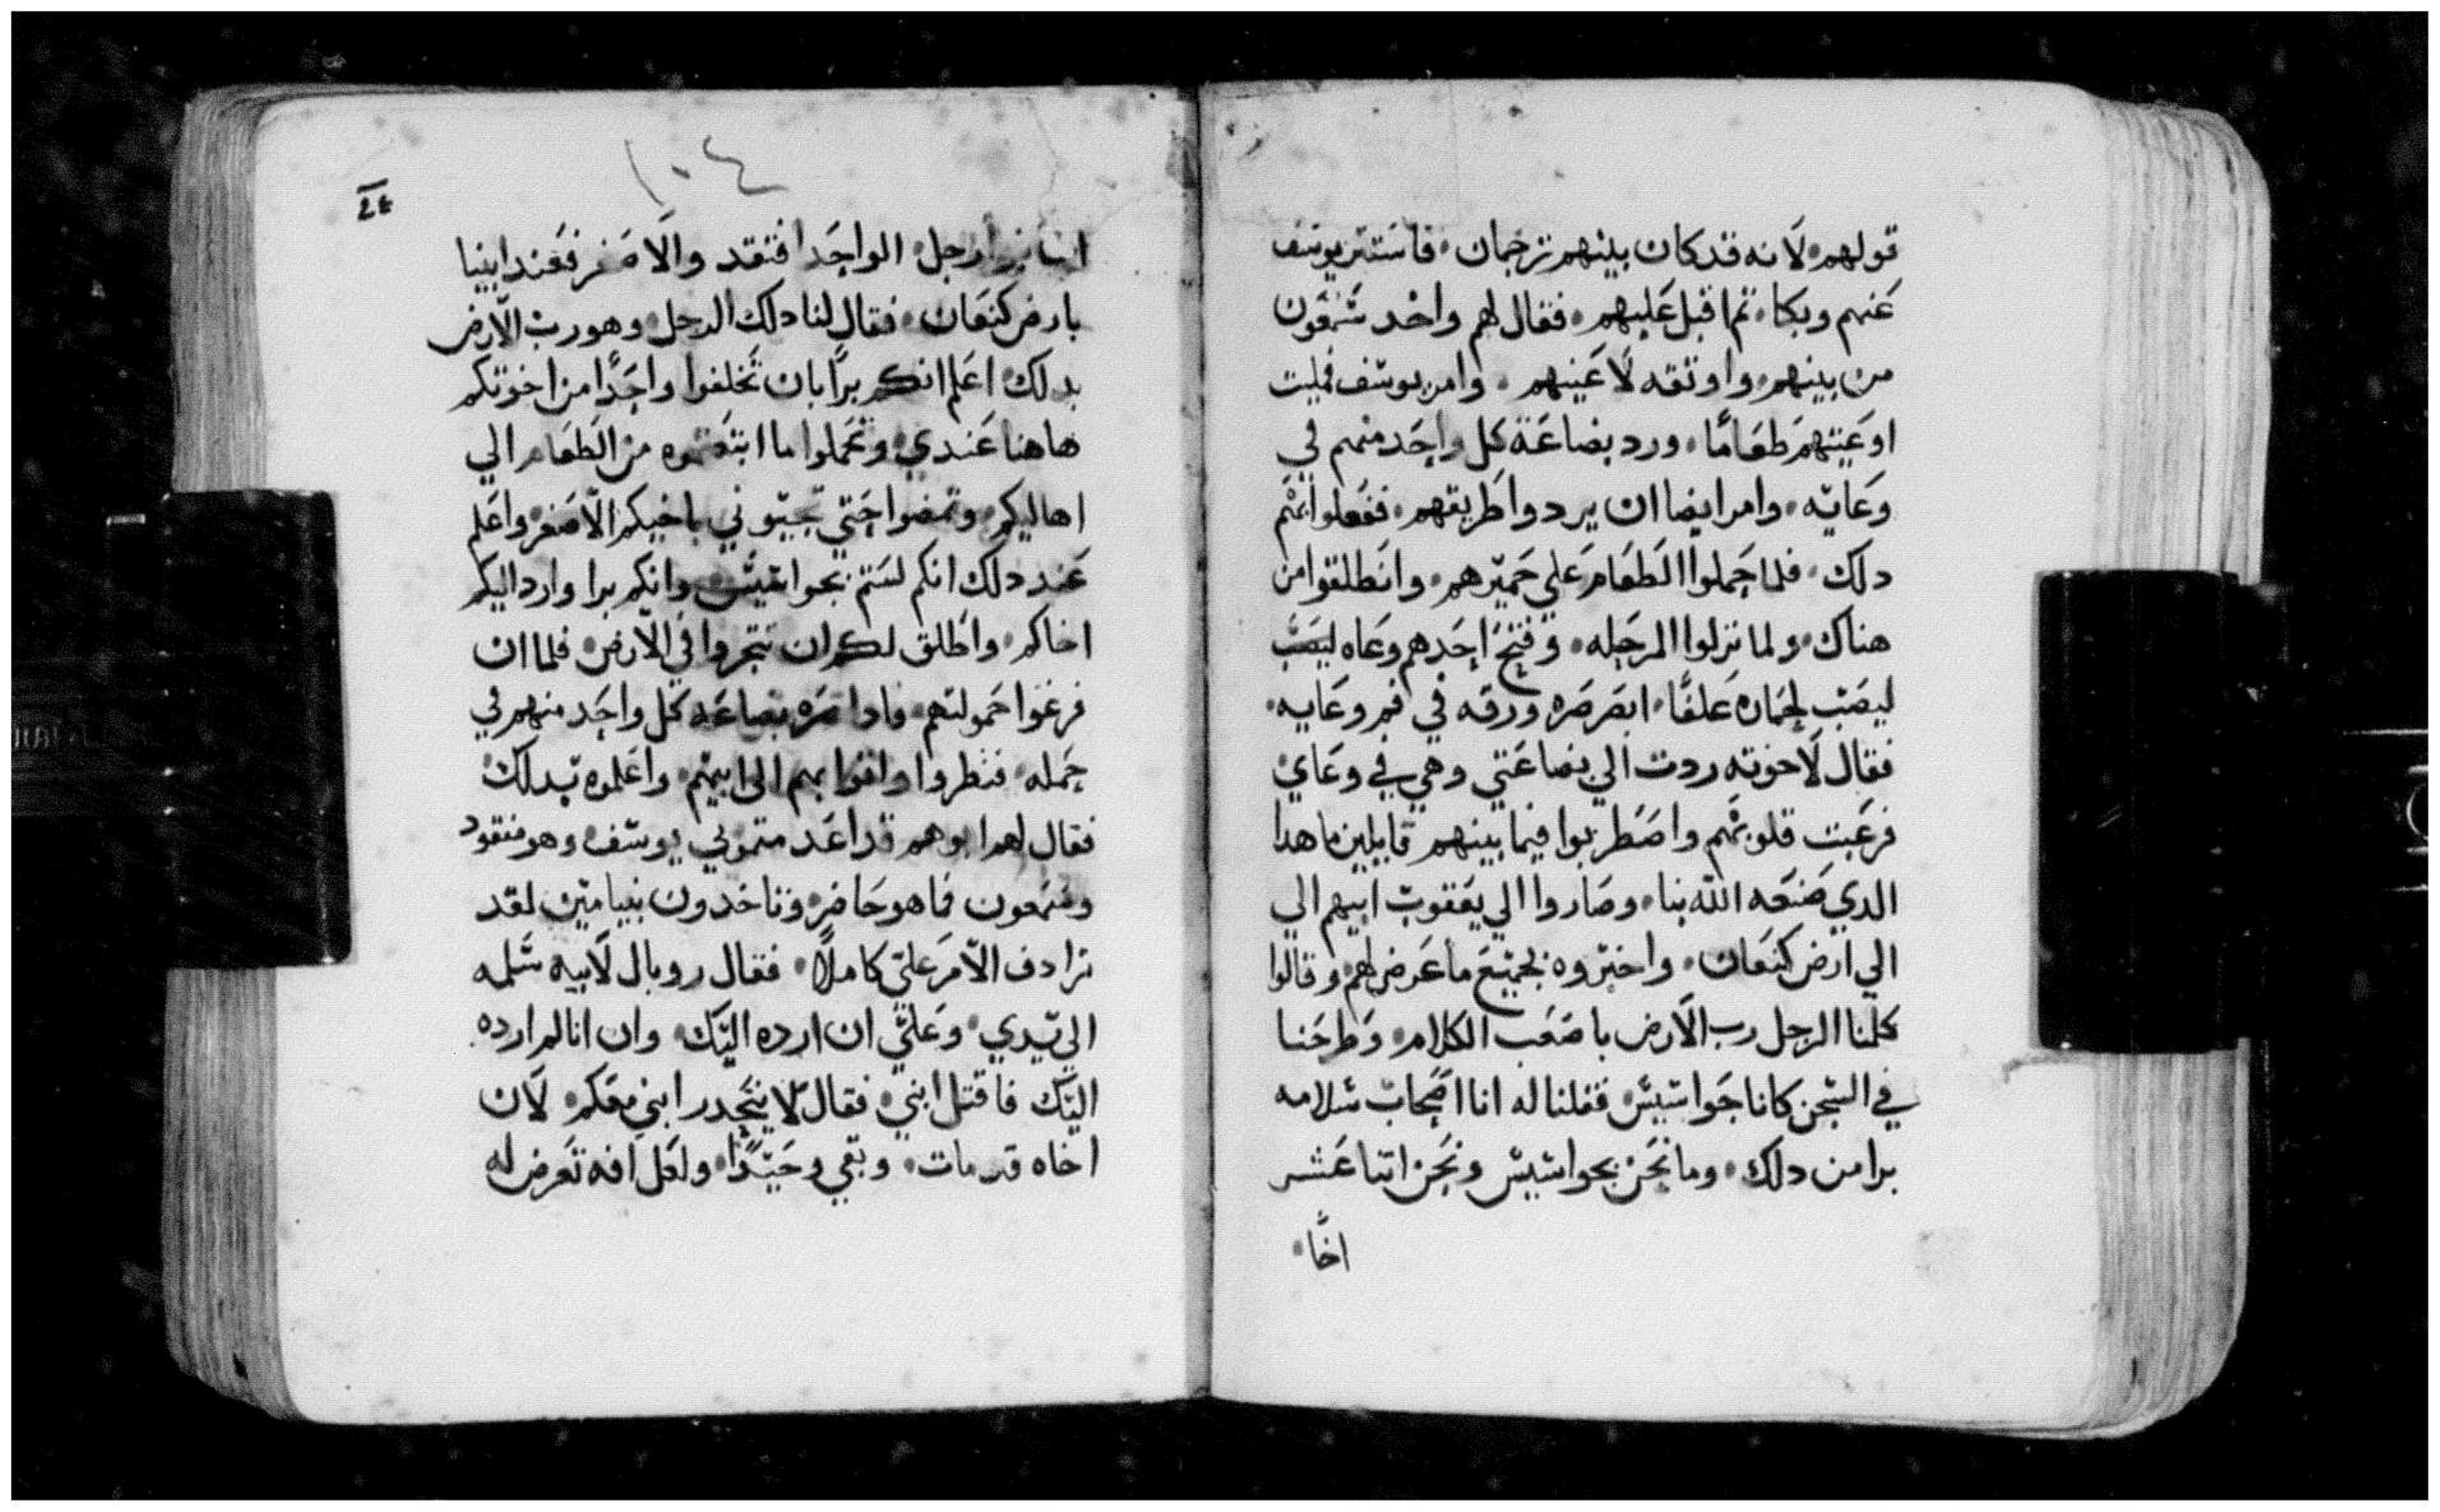 قولهم لانه قد كان بينهم ترجمان فاستتر يوسف
عنهم وبكا تم اقبل عليهم فقال لهم واخد شمعون
من بينهم واوتقه لاعينهم وامر يوسف فمليت
اوعيتهم طعامًا ورد بضاعة كل واحد منهم في
وعايه وامر ايضا ان يردوا طريقهم ففعلوا بهم
دلك فلما حملوا الطعام علي حميرهم وانطلقوا من
هناك ولما نزلوا المرحله وفتح احدهم وعاه ليصب
ليصب لحماره علفًا ابصر صره ورقه في فم وعايه
فقال لاخوته ردت الي بضاعتي وهي في وعاي
فرعبت قلوبهم واضطربوا فيما بينهم قايلين ما هدا
الدي صنعه الله بنا وصاروا الي يعقوب ابيهم الي
الي ارض كنعان واخبروه بجميع ما عرض لهم وقالوا
كلمنا الرجل رب الارض باصعب الكلام وطرحنا
في السجن كانا جواسيس فقلنا له انا اصحاب سلامه
برا من دلك وما نحن بجواسيس ونحن اتنا عشر
اخًا
١٠٤
الواحد افتقد والاصغر فعند ابينا
بارض كنعان فقال لنا دلك الرجل وهو رب الارض
بدلك اعلم انكم برًا بان تخلفوا واحدًا من اخوتكم
هاهنا عندي وتحملوا ما ابتعتموه من الطعام الي
اهاليكم وتمضوا حتي تجيبوني باخيكم الاصغر واعلم
عند دلك انكم لستم بجواسيس وانكم برا وارد اليكم
اخاكم واطلق لكم ان تتجروا في الارض فلما ان
فرغوا حمولتهم فادا صره بضاعه كل واحد منهم في
حمله فنظروا واتوا بهم الى ابيهم واعلموه بدلك
فقال لهم ابوهم قد اعدمتموني يوسف وهو مفقود
وشمعون فما هو حاضر وتاخدون بنيامين لقد
ترادف الامر علي كاملًا فقال روبال لابيه سلمه
الي يدي وعلي ان ارده اليك وان انا لم ارده
اليك فاقتل ابني فقال لا ينحدر ابني معكم لان
اخاه قد مات وبقي وحيدًا ولعل افه تعرض له